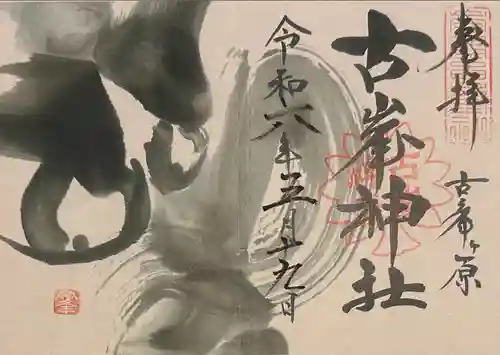 奉拝
古峯ヶ原
古峯神社
令和六年三月十九日